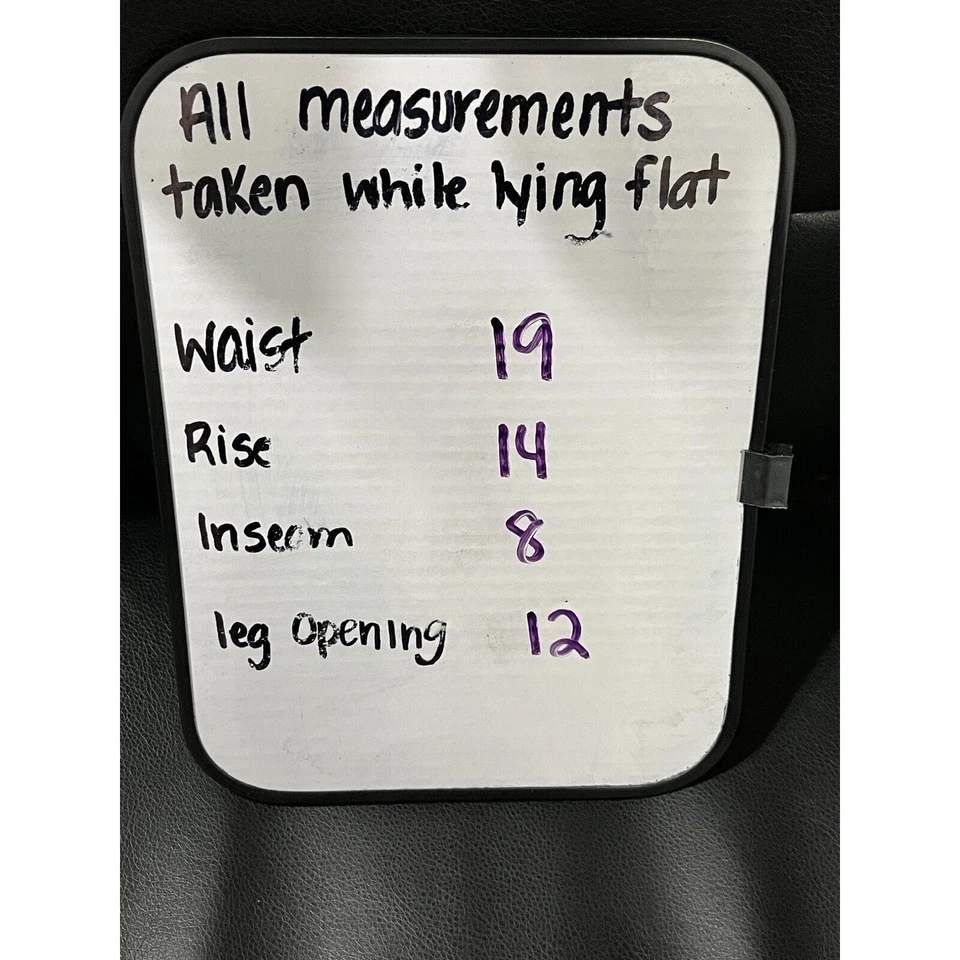 All measurements
taken while lying flat
Waist 19
Rise 14
Inseam 8
leg Opening 12